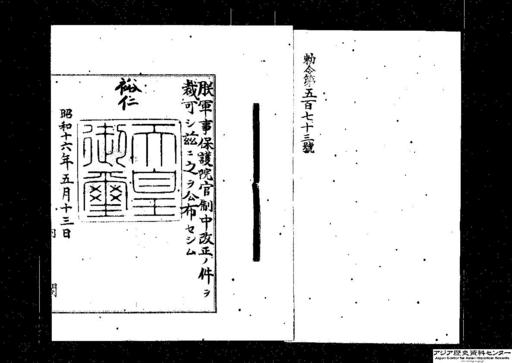 勅令第五百七十三號
朕軍事保護院官制中改正ノ件ヲ
裁可シ茲ニ之ヲ公布セシム
裕仁
天皇
御璽
昭和十六年五月十三日
アジア歴史資料センター
Japan Center for Asian Historical Records